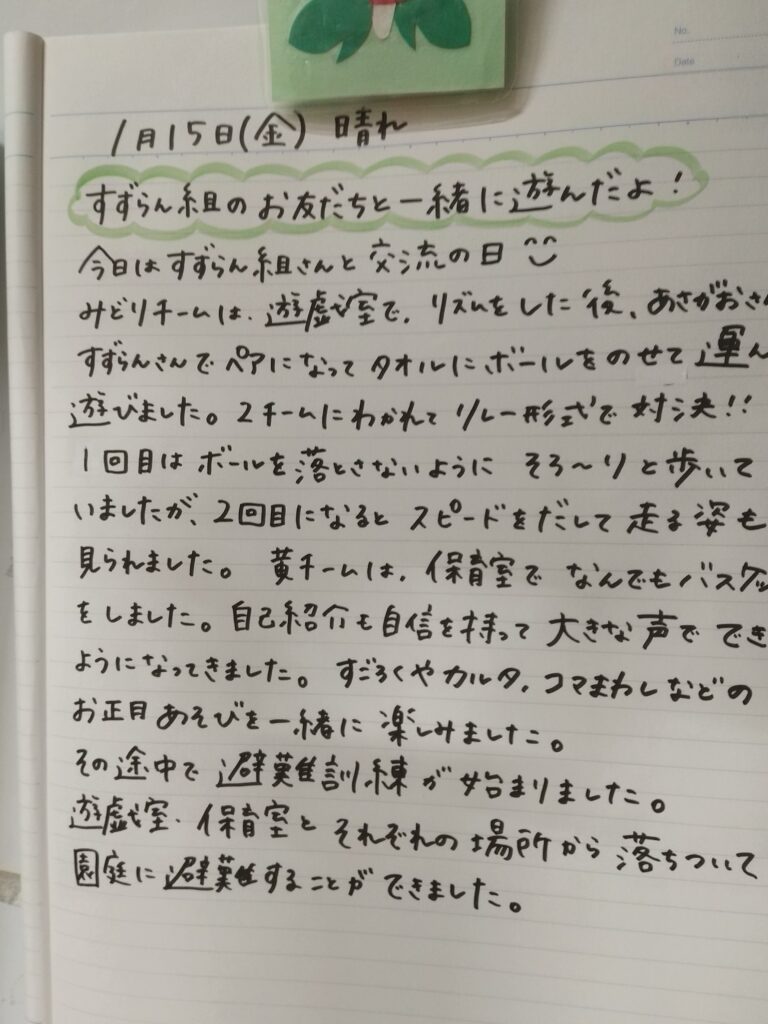 No.
Date
1月15日(金) 晴れ
すずらん組のお友だちと一緒に遊んだよ！
今日はすずらん組さんと交流の日
みどりチームは、遊戯室で、リズムをした後、あさがおさん
すずらんさんでペアになってタオルにボールをのせて運ん
遊びました。2チームにわかれてリレー形式で対決!!
1回目はボールを落とさないようにそろ〜りと歩いて
いましたが、2回目になるとスピードをだして走る姿も
見られました。黄チームは、保育室でなんでもバスケッ
をしました。自己紹介も自信を持って大きな声ででき
ようになってきました。すごろくやカルタ、コマまわしなどの
お正月あそびを一緒に楽しみました。
その途中で避難訓練が始まりました。
遊戯室、保育室とそれぞれの場所から落ちついて
園庭に避難することができました。